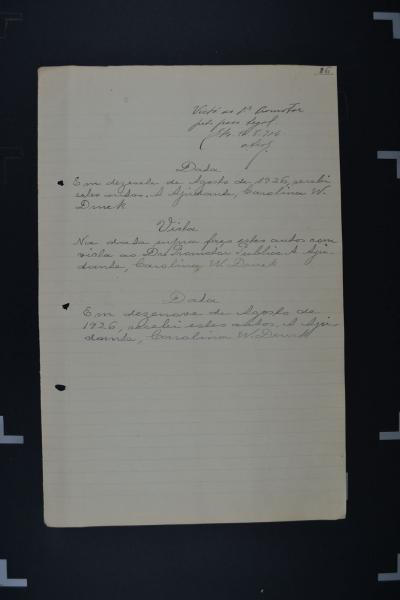 26
Visto ao Dr Promotor
pelo praso legal.
Data
Em dezesete de Agosto de 1926, recebi
estes autos. A Ajudante, Carolina W.
Duck
Vista
Na data supra faço estes autos com
vista ao Dr. Promotor Publico. A Aju-
dante, Carolina W. Duck
Data
Em dezenove de Agosto de
1926, recebi estes autos. A Aju-
dante, Carolina W. Duck